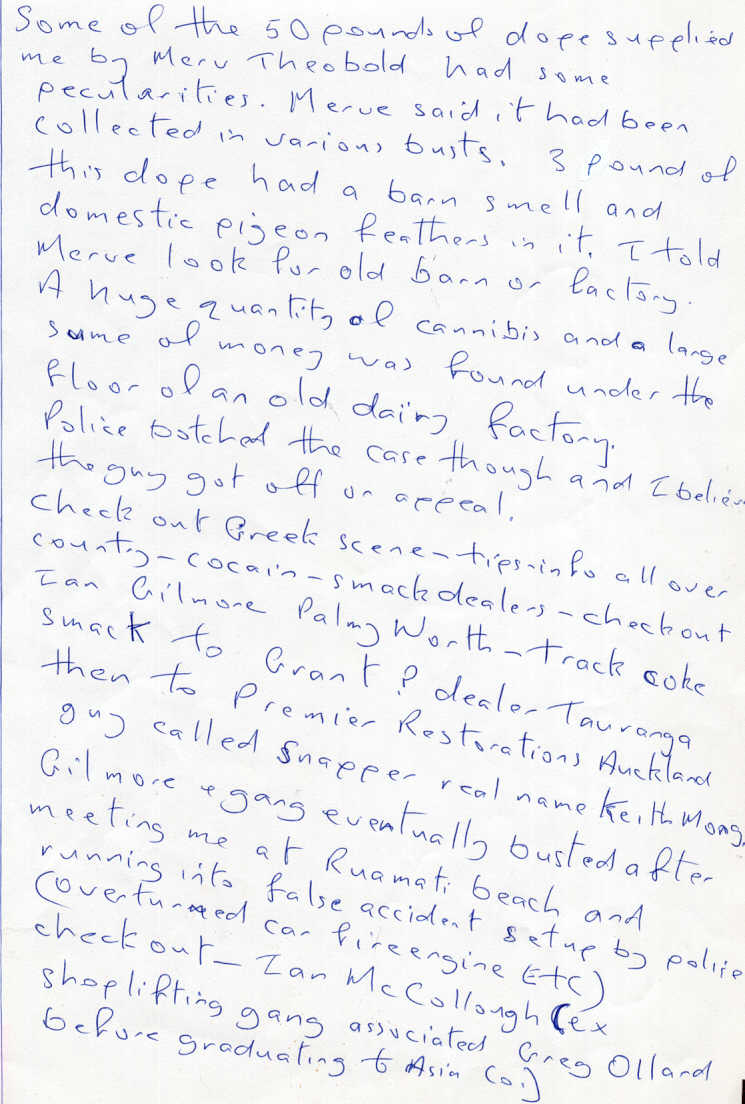 Some of the 50 pounds of dope supplied
me by Merv Theobold had some
pecularities. Merve said it had been
collected in various busts. 3 pound of
this dope had a barn smell and
domestic pigeon feathers in it. I told
Merve look for old barn or factory.
A huge quantity of cannibis and a large
sume of money was found under the
floor of an old dairy factory.
Police botched the case though and I believe
the guy got off on appeal.
check out Greek scene-tips-info all over
county-cocain-smack dealers-checkout
Ian Gilmore Palmy Worth-track coke
smack to Grant ? dealer Tauranga
then to Premier Restorations Auckland
guy called Snapper real name Keith Mong.
Gilmore & gang eventually busted after
meeting me at Ruamati beach and
running into false accident setup by police
(overturned car fireengine Etc)
check out- Ian McCollough (ex
shoplifting gang associated Greg Olland
before graduating to Asia